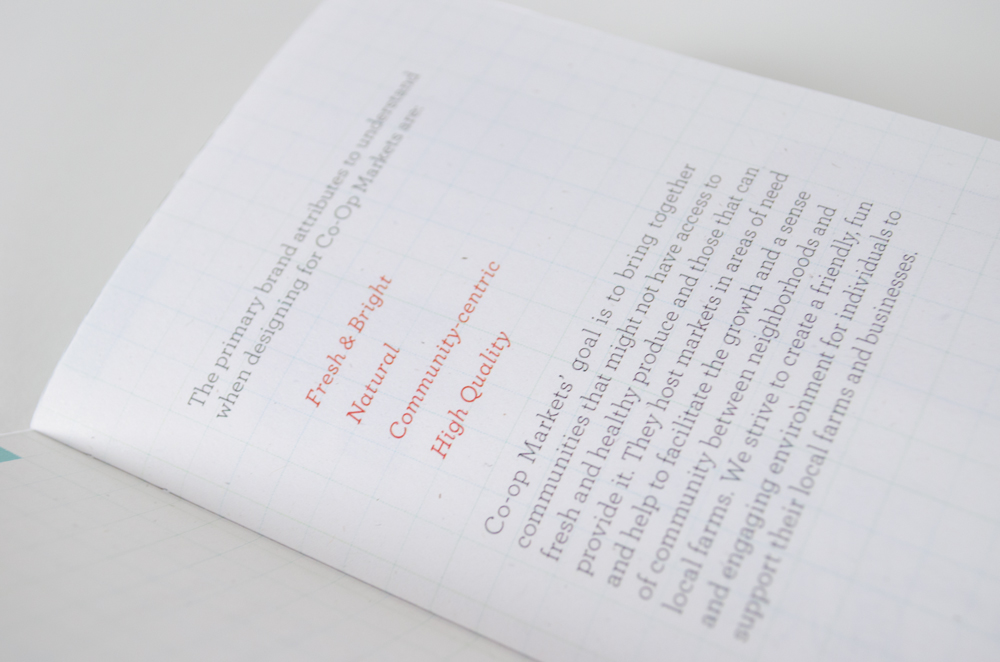 The primary brand attributes to understand
when designing for Co-Op Markets are:
Fresh & Bright
Natural
Community-centric
High Quality
Co-op Markets' goal is to bring together
communities that might not have access to
fresh and healthy produce and those that can
provide it. They host markets in areas of need
and help to facilitate the growth and a sense
of community between neighborhoods and
local farms. We strive to create a friendly, fun
and engaging environment for individuals to
support their local farms and businesses.